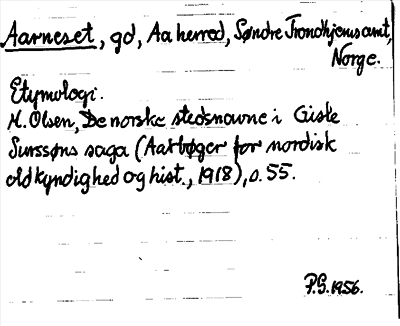 Aarneset, gd, Aa herred, Søndre Trondhjems amt,
Norge.
Etymologi.
M. Olsen, De norske stedsnavne i Gisle
Surssøns saga (Aarbøger for nordisk
oldkyndighed og hist., 1918), s. 55.
P.G. 1956.